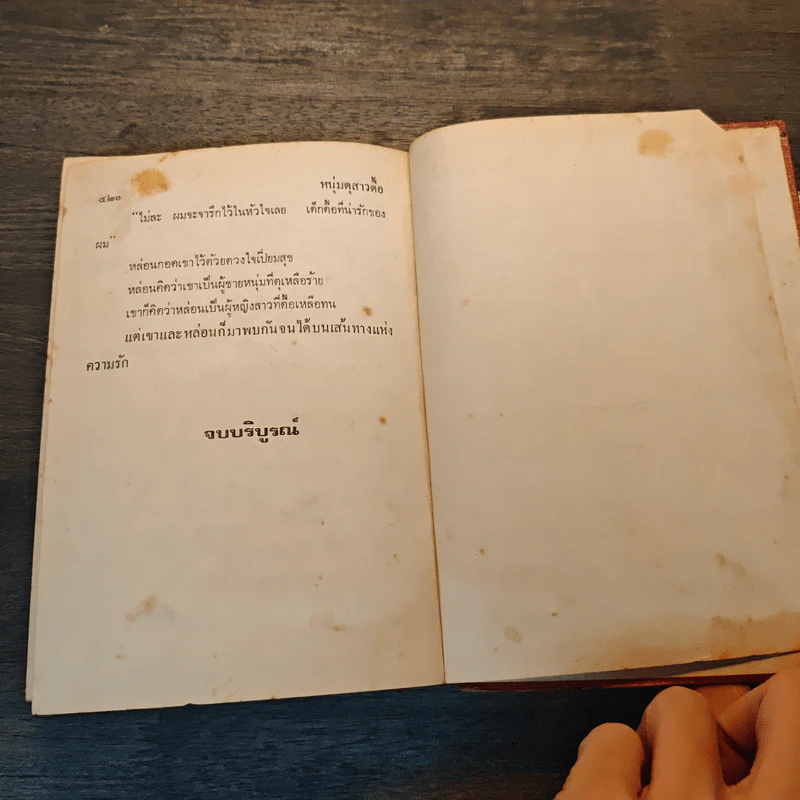 ๔๒๐
หนุ่มดุสาวดื้อ
"ไม่ละ ผมจะจารึกไว้ในหัวใจเลย เด็กดื้อที่น่ารักของ
ผม"
หล่อนกอดเขาไว้ด้วยดวงใจเปี่ยมสุข
หล่อนคิดว่าเขาเป็นผู้ชายหนุ่มที่ดุเหลือร้าย
เขาก็คิดว่าหล่อนเป็นผู้หญิงสาวที่ดื้อเหลือทน
แต่เขาและหล่อนก็มาพบกันจนได้บนเส้นทางแห่ง
ความรัก
จบบริบูรณ์